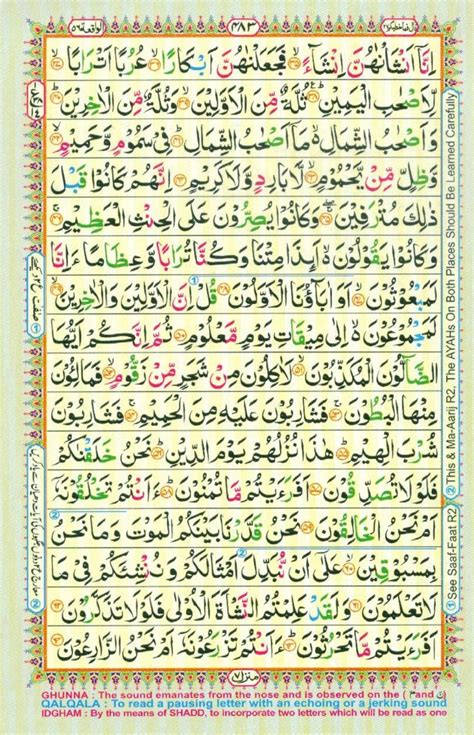 الواقعة ٥٦
٤٨٣
اِنَّاۤ اَنْشَاْنٰهُنَّ اِنْشَآءً ۙ ﴿۳۵﴾ فَجَعَلْنٰهُنَّ اَبْكَارًا ۙ ﴿۳۶﴾ عُرُبًا اَتْرَابًا ۙ ﴿۳۷﴾
لِّاَصْحٰبِ الْيَمِيْنِ ؕ ﴿۳۸﴾ ثُلَّةٌ مِّنَ الْاَوَّلِيْنَ ۙ ﴿۳۹﴾ وَثُلَّةٌ مِّنَ الْاٰخِرِيْنَ ؕ ﴿۴۰﴾
وَاَصْحٰبُ الشِّمَالِ ۙ مَاۤ اَصْحٰبُ الشِّمَالِ ؕ ﴿۴۱﴾ فِيْ سَمُوْمٍ وَّحَمِيْمٍ ۙ ﴿۴۲﴾
وَّظِلٍّ مِّنْ يَّحْمُوْمٍ ۙ ﴿۴۳﴾ لَّا بَارِدٍ وَّلَا كَرِيْمٍ ﴿۴۴﴾ اِنَّهُمْ كَانُوْا قَبْلَ
ذٰلِكَ مُتْرَفِيْنَ ۚ ﴿۴۵﴾ وَكَانُوْا يُصِرُّوْنَ عَلَى الْحِنْثِ الْعَظِيْمِ ۚ ﴿۴۶﴾
وَكَانُوْا يَقُوْلُوْنَ ۙ اَئِذَا مِتْنَا وَكُنَّا تُرَابًا وَّعِظَامًا ءَاِنَّا
لَمَبْعُوْثُوْنَ ۙ ﴿۴۷﴾ اَوَ اٰبَآؤُنَا الْاَوَّلُوْنَ ﴿۴۸﴾ قُلْ اِنَّ الْاَوَّلِيْنَ وَالْاٰخِرِيْنَ ۙ ﴿۴۹﴾
لَمَجْمُوْعُوْنَ ۙ اِلٰى مِيْقَاتِ يَوْمٍ مَّعْلُوْمٍ ﴿۵۰﴾ ثُمَّ اِنَّكُمْ اَيُّهَا
الضَّآلُّوْنَ الْمُكَذِّبُوْنَ ۙ ﴿۵۱﴾ لَاٰكِلُوْنَ مِنْ شَجَرٍ مِّنْ زَقُّوْمٍ ۙ ﴿۵۲﴾ فَمَالِـُٔوْنَ
مِنْهَا الْبُطُوْنَ ۚ ﴿۵۳﴾ فَشَارِبُوْنَ عَلَيْهِ مِنَ الْحَمِيْمِ ۚ ﴿۵۴﴾ فَشَارِبُوْنَ
شُرْبَ الْهِيْمِ ؕ ﴿۵۵﴾ هٰذَا نُزُلُهُمْ يَوْمَ الدِّيْنِ ؕ ﴿۵۶﴾ نَحْنُ خَلَقْنٰكُمْ
فَلَوْلَا تُصَدِّقُوْنَ ﴿۵۷﴾ اَفَرَءَيْتُمْ مَّا تُمْنُوْنَ ؕ ﴿۵۸﴾ ءَاَنْتُمْ تَخْلُقُوْنَهٗۤ
اَمْ نَحْنُ الْخٰلِقُوْنَ ﴿۵۹﴾ نَحْنُ قَدَّرْنَا بَيْنَكُمُ الْمَوْتَ وَمَا نَحْنُ
بِمَسْبُوْقِيْنَ ۙ ﴿۶۰﴾ عَلٰۤى اَنْ نُّبَدِّلَ اَمْثَالَكُمْ وَنُنْشِئَكُمْ فِيْ مَا
لَا تَعْلَمُوْنَ ﴿۶۱﴾ وَلَقَدْ عَلِمْتُمُ النَّشْاَةَ الْاُوْلٰى فَلَوْلَا تَذَكَّرُوْنَ ﴿۶۲﴾
اَفَرَءَيْتُمْ مَّا تَحْرُثُوْنَ ؕ ﴿۶۳﴾ ءَاَنْتُمْ تَزْرَعُوْنَهٗۤ اَمْ نَحْنُ الزَّارِعُوْنَ ﴿۶۴﴾
① See Saaf-Faat R2 ② This & Ma-Aarij R2, The AYAHs On Both Places Should Be Learned Carefully
منزل ٧
GHUNNA : The sound emanates from the nose and is observed on the ( م and ن )
QALQALA : To read a pausing letter with an echoing or a jerking sound
IDGHAM : By the means of SHADD, to incorporate two letters which will be read as one